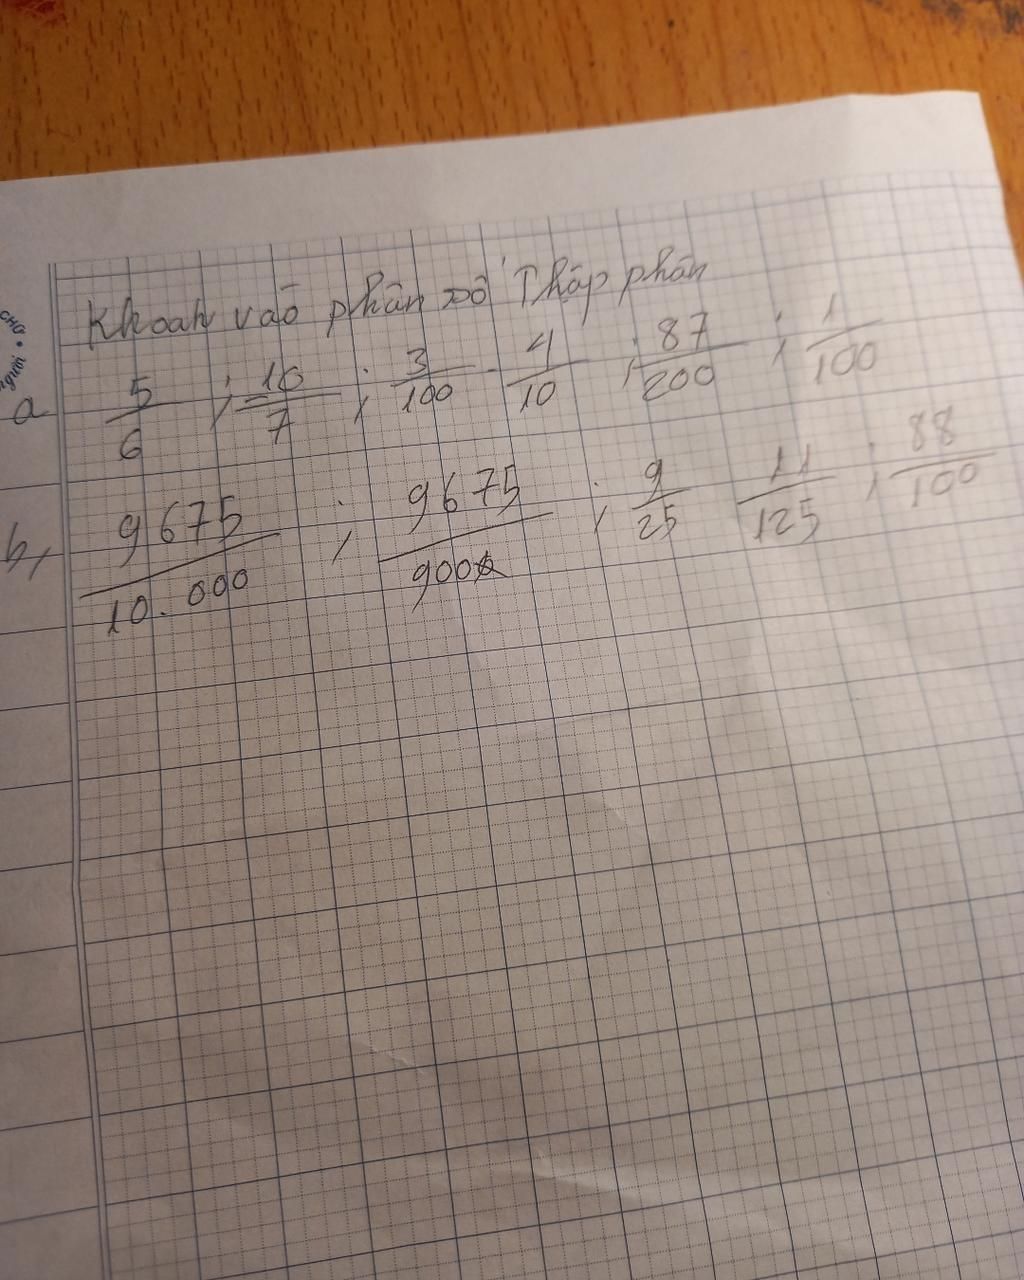 Khoah vaō phân số Thâp phân
a 5/6 ; 10/7 ; 3/100 . 4/10 ; 87/200 ; 1/100
b, 9675/10.000 ; 9675/900 ; 9/25 11/125 ; 88/100
CHO
người